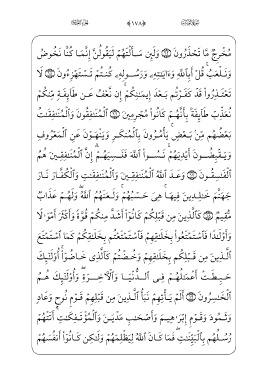 ﴿١٧٨﴾
مُخْرِجٌ مَّا تَحْذَرُونَ ۝ وَلَئِن سَأَلْتَهُمْ لَيَقُولُنَّ إِنَّمَا كُنَّا نَخُوضُ
وَنَلْعَبُ ۚ قُلْ أَبِٱللَّهِ وَءَايَٰتِهِۦ وَرَسُولِهِۦ كُنتُمْ تَسْتَهْزِءُونَ ۝ لَا
تَعْتَذِرُوا۟ قَدْ كَفَرْتُم بَعْدَ إِيمَٰنِكُمْ ۚ إِن نَّعْفُ عَن طَآئِفَةٍ مِّنكُمْ
نُعَذِّبْ طَآئِفَةًۢ بِأَنَّهُمْ كَانُوا۟ مُجْرِمِينَ ۝ ٱلْمُنَٰفِقُونَ وَٱلْمُنَٰفِقَٰتُ
بَعْضُهُم مِّنۢ بَعْضٍ ۚ يَأْمُرُونَ بِٱلْمُنكَرِ وَيَنْهَوْنَ عَنِ ٱلْمَعْرُوفِ
وَيَقْبِضُونَ أَيْدِيَهُمْ ۚ نَسُوا۟ ٱللَّهَ فَنَسِيَهُمْ ۗ إِنَّ ٱلْمُنَٰفِقِينَ هُمُ
ٱلْفَٰسِقُونَ ۝ وَعَدَ ٱللَّهُ ٱلْمُنَٰفِقِينَ وَٱلْمُنَٰفِقَٰتِ وَٱلْكُفَّارَ نَارَ
جَهَنَّمَ خَٰلِدِينَ فِيهَا ۚ هِىَ حَسْبُهُمْ ۚ وَلَعَنَهُمُ ٱللَّهُ ۖ وَلَهُمْ عَذَابٌ
مُّقِيمٌ ۝ كَٱلَّذِينَ مِن قَبْلِكُمْ كَانُوٓا۟ أَشَدَّ مِنكُمْ قُوَّةً وَأَكْثَرَ أَمْوَٰلًا
وَأَوْلَٰدًا فَٱسْتَمْتَعُوا۟ بِخَلَٰقِهِمْ فَٱسْتَمْتَعْتُم بِخَلَٰقِكُمْ كَمَا ٱسْتَمْتَعَ
ٱلَّذِينَ مِن قَبْلِكُم بِخَلَٰقِهِمْ وَخُضْتُمْ كَٱلَّذِى خَاضُوٓا۟ ۚ أُو۟لَٰٓئِكَ
حَبِطَتْ أَعْمَٰلُهُمْ فِى ٱلدُّنْيَا وَٱلْءَاخِرَةِ ۖ وَأُو۟لَٰٓئِكَ هُمُ
ٱلْخَٰسِرُونَ ۝ أَلَمْ يَأْتِهِمْ نَبَأُ ٱلَّذِينَ مِن قَبْلِهِمْ قَوْمِ نُوحٍ وَعَادٍ
وَثَمُودَ وَقَوْمِ إِبْرَٰهِيمَ وَأَصْحَٰبِ مَدْيَنَ وَٱلْمُؤْتَفِكَٰتِ ۚ أَتَتْهُمْ
رُسُلُهُم بِٱلْبَيِّنَٰتِ ۖ فَمَا كَانَ ٱللَّهُ لِيَظْلِمَهُمْ وَلَٰكِن كَانُوٓا۟ أَنفُسَهُمْ